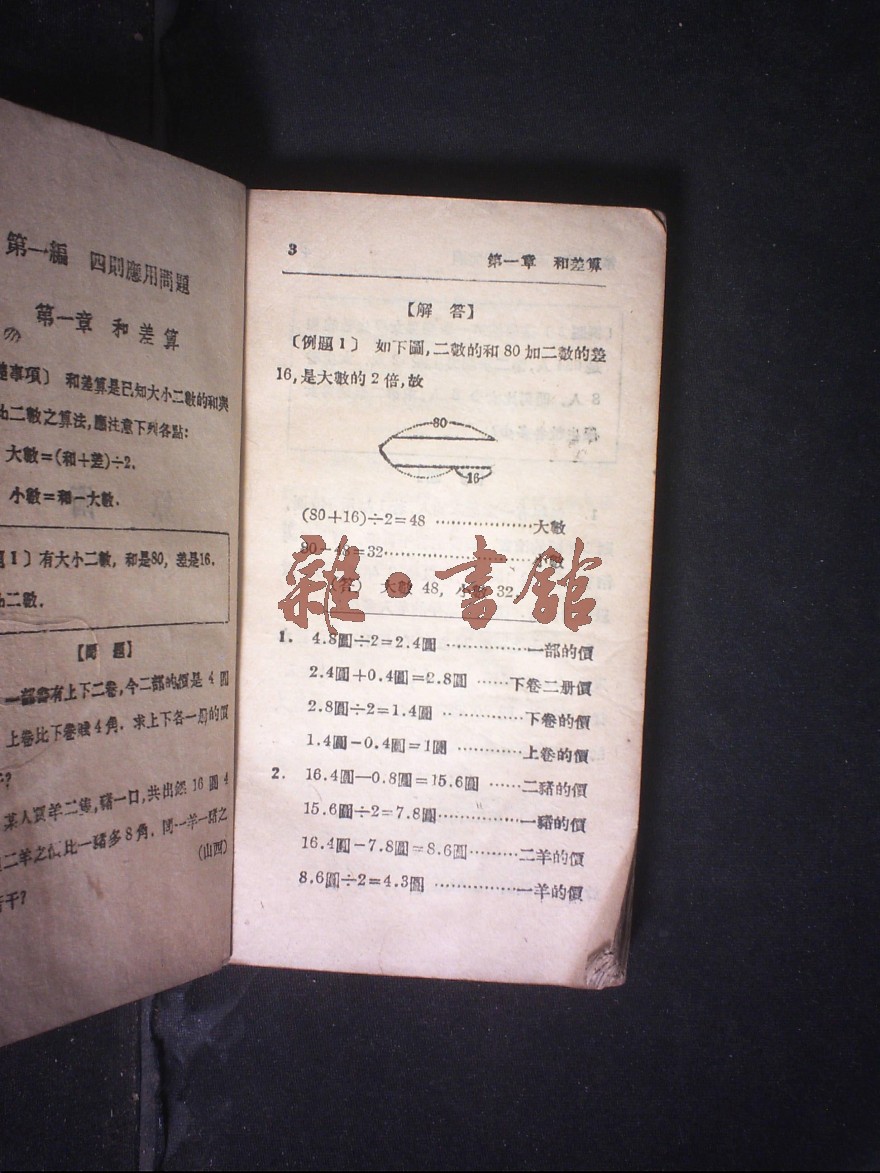 第一編 四則應用問題
第一章 和差算
事項〕 和差算是已知大小二數的和與
二數之算法,應注意下列各點:
大數=(和+差)÷2.
小數=和-大數.
1〕有大小二數, 和是80, 差是16.
二數.
【問 題】
一部書有上下二卷,今二部的價是 4 圓
上卷比下卷賤4角. 求上下各一册的價
?
某人買羊二隻,豬一口,共出銀 16 圓 4
二羊之價比一豬多8角. 問一羊一豬之
(山西)
若干?
3
第一章 和差算
【解 答】
〔例題1〕 如下圖,二數的和80加二數的差
16,是大數的2倍,故
80
16
(80+16)÷2=48 ………………大數
80-48=32……………………小數
(答) 大數 48, 小數 32.
雜·書館
1. 4.8圓÷2=2.4圓 ……………一部的價
2.4圓+0.4圓=2.8圓 ……下卷二册價
2.8圓÷2=1.4圓 ……………下卷的價
1.4圓-0.4圓=1圓 …………上卷的價
2. 16.4圓—0.8圓=15.6圓 ……二豬的價
15.6圓÷2=7.8圓………………一豬的價
16.4圓-7.8圓=8.6圓………二羊的價
8.6圓÷2=4.3圓 ……………一羊的價